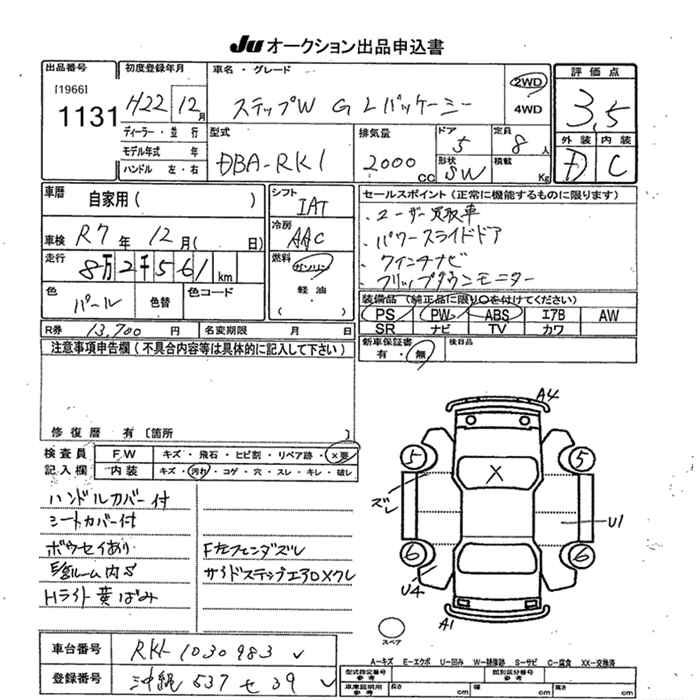 JU オークション出品申込書
出品番号
[1966]
1131
初度登録年月
H22 12月
車名・グレード
ステップW G Lパッケージ
2WD
4WD
評価点
3,5
外装 内装
D C
ディーラー・並行
モデル年式 年
ハンドル 左・右
型式
DBA-RK1
排気量
2000 CC
ドア
5
形状
SW
定員
8人
積載
Kg
車歴
自家用( )
車検 R7年 12月( 日)
走行 8万2千561km
色 パール 色替 色コード
シフト
IAT
冷房
AAC
燃料
ガソリン
軽油
( )
セールスポイント(正常に機能するものに限ります)
・ユーザー買取車
・パワースライドドア
・9インチナビ
・フリップダウンモニター
装備品(純正品に限り○を付けてください)
PS PW ABS エアB AW
SR ナビ TV カワ
R券 13,700円 名変期限 月 日
新車保証書
有・無
後日品
注意事項申告欄(不具合内容等は具体的に記入して下さい)
修復歴 有〔箇所 〕
検査員
記入欄
FW キズ・飛石・ヒビ割・リペア跡・×要
内装 キズ・汚れ・コゲ・穴・スレ・キレ・破レ
ハンドルカバー付
シートカバー付
ボウセイあり
ルーム内S
Hライト黄ばみ
F左フェンダズレ
サイドステップエアロXワレ
A4
5
5
ズレ
X
U1
6
6
U4
A1
スペア
車台番号 RK1-1030983
登録番号 沖縄 537 せ 39
A-キズ E-エクボ U-凹み W-補修跡 S-サビ C-腐食 XX-交換済
型式指定番号
参考
類別区分番号
参考
車庫証明用
参考
長さ cm 幅 cm 高さ cm